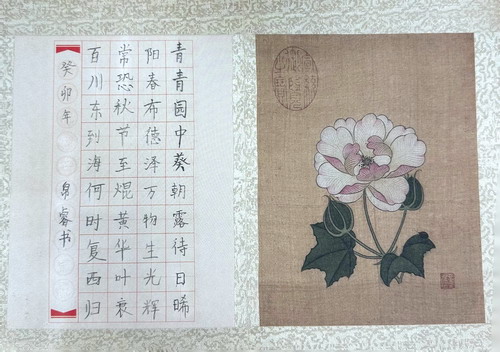 青青园中葵朝露待日晞
阳春布德泽万物生光辉
常恐秋节至焜黄华叶衰
百川东到海何时复西归
癸卯年
睿书